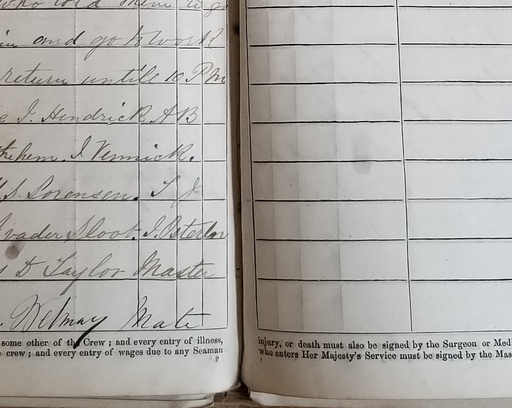 who told them to g
in and go to work
return untile 10 PM
I. Hendrick AB
I. Vennick.
S. Sorensen.
vader Sloot. I.
D Taylor Master
Mate
some other of the Crew ; and every entry of illness,
crew ; and every entry of wages due to any Seaman
injury, or death must also be signed by the Surgeon or Med
who enters Her Majesty's Service must be signed by the Mas